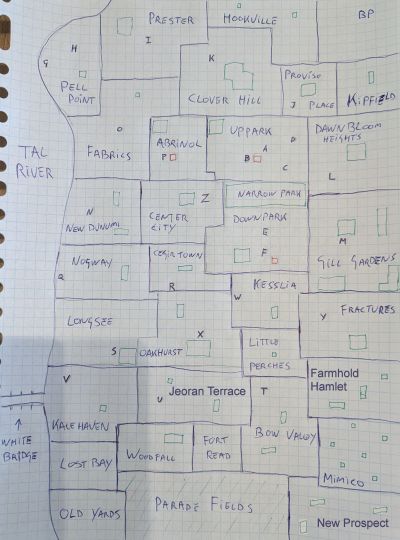 PRESTER
HOOKVILLE
BP
H
I
G
K
PELL
POINT
CLOVER HILL
PROVISO
J PLACE
KIPFIELD
O
FABRICS
ABRINOL
P
UPPARK
A
B
C
D
DAWNBLOOM
HEIGHTS
L
TAL
RIVER
N
NEW DUNUM
CENTER
CITY
Z
NARROW PARK
DOWNPARK
E
F
M
GILL GARDENS
NOGWAY
Q
R
KESSLIA
W
Y FRACTURES
LONGSEE
X
S OAKHURST
LITTLE
PERCHES
V
KALEHAVEN
U Jeoran Terrace
T
Farmhold
Hamlet
WHITE
BRIDGE
LOST BAY
WOODFALL
FORT
READ
BOW VALLEY
MIMICO
OLD YARDS
PARADE FIELDS
New Prospect